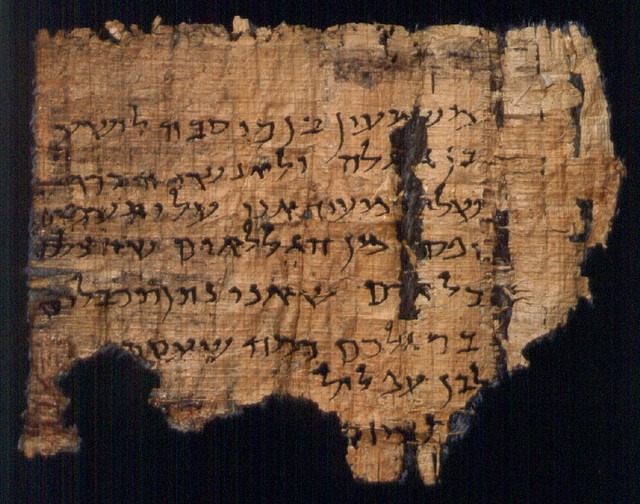 משמעון בן כוסבה לישע
בן גלגלה ולאנשי הברך
שלום מעיד אני עלי תשמים
יפס מן הגללאים שהצלכם
כל אדם שאני נתן תכבלים
ברגלכם כמה שעסת
לבן עפלול